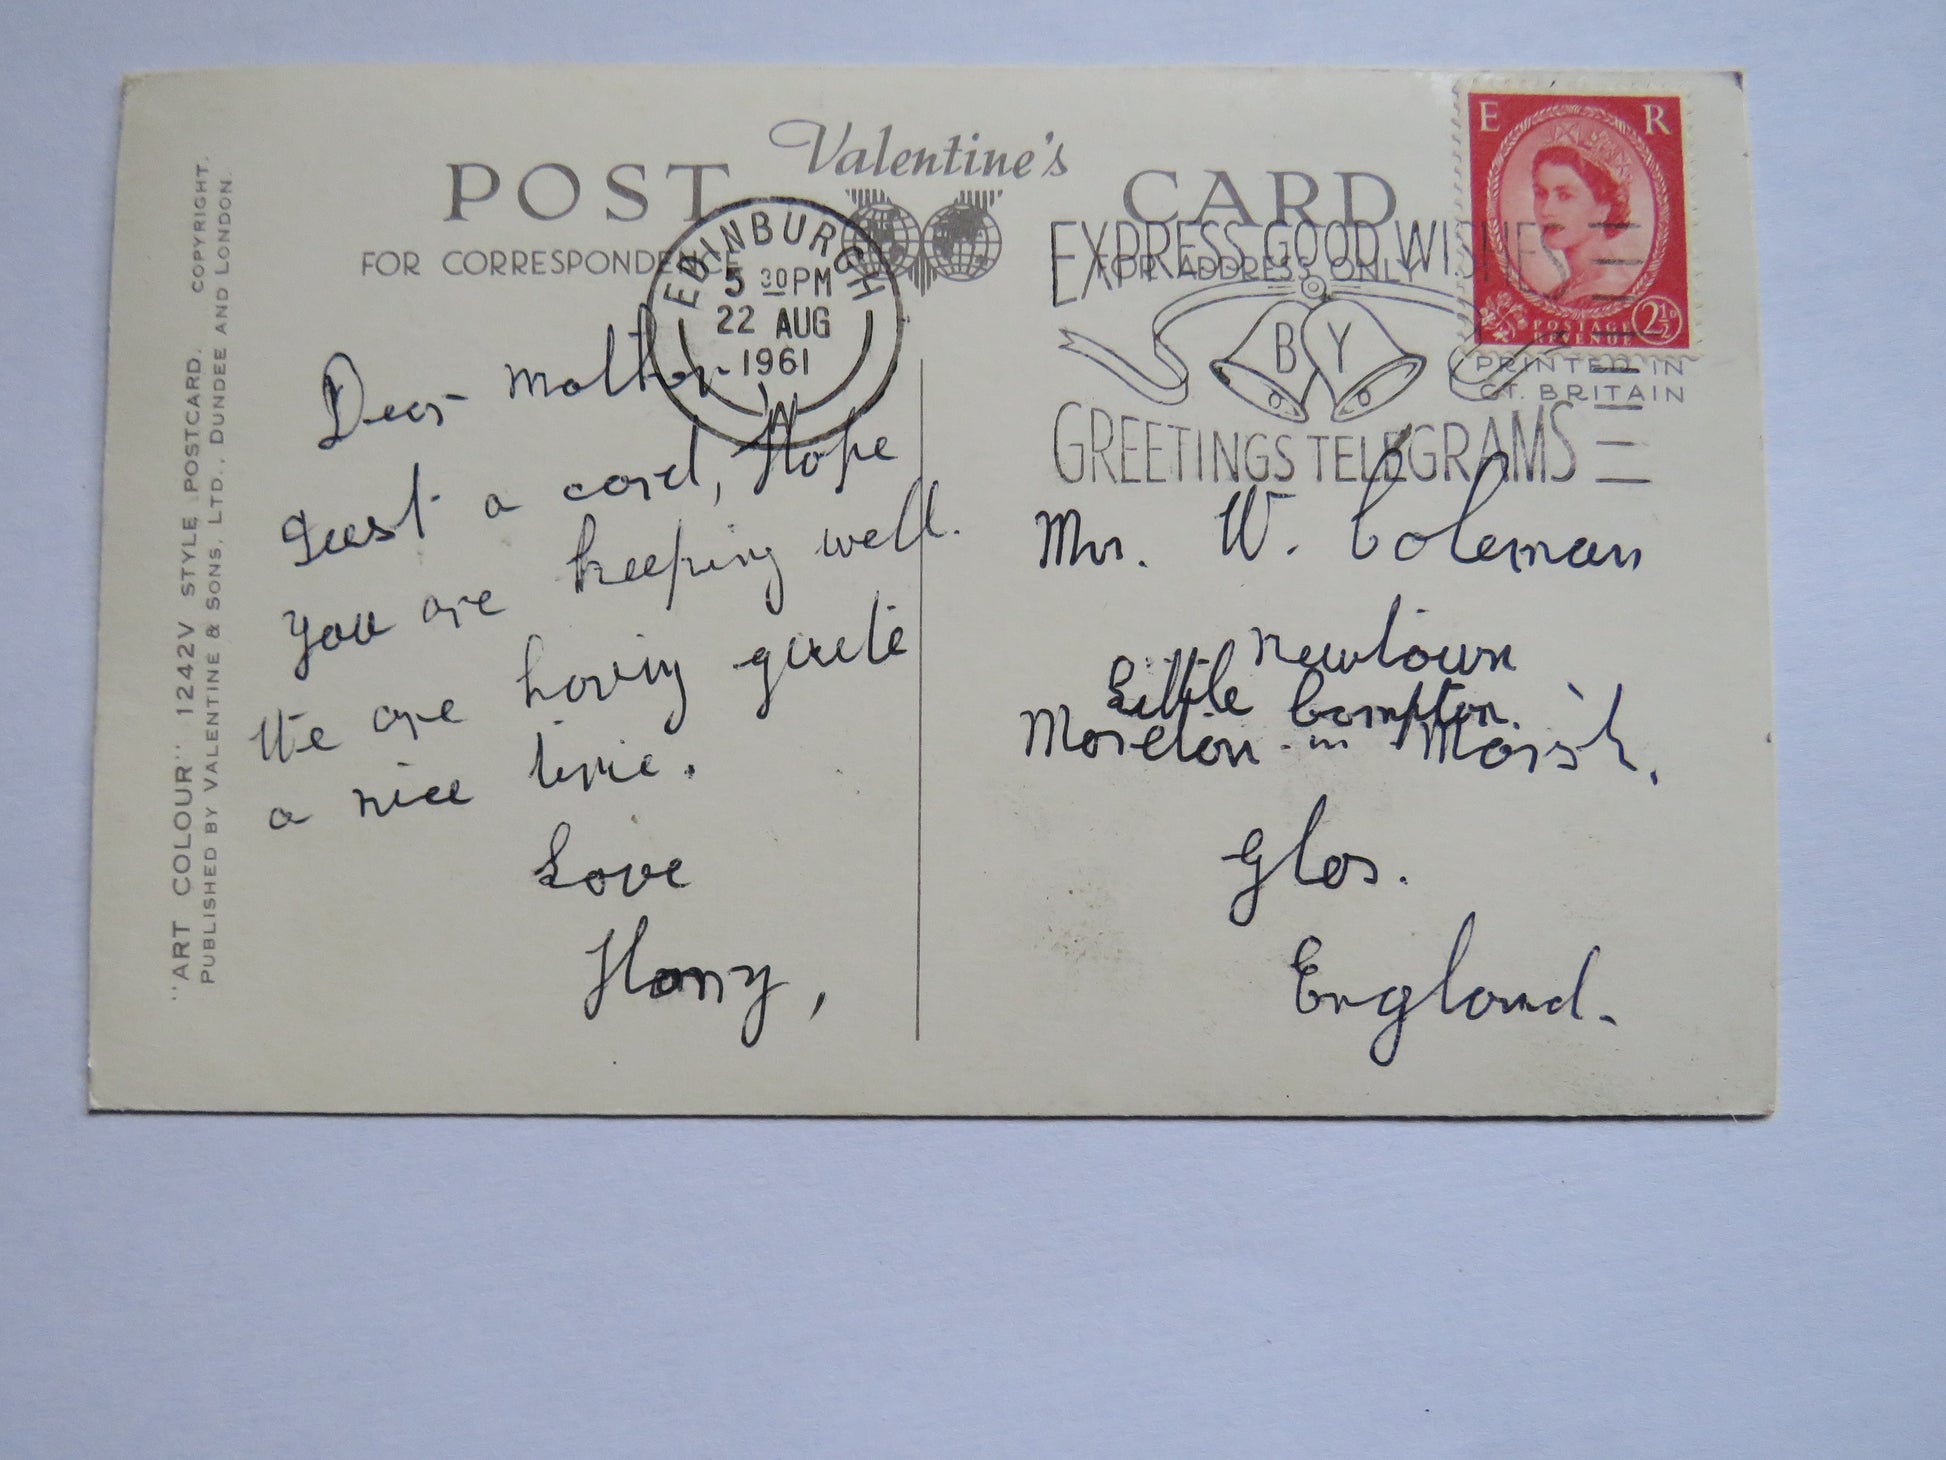 Valentine's
POST CARD
FOR CORRESPONDENCE
FOR ADDRESS ONLY
EDINBURGH
5 30 PM
22 AUG
1961
EXPRESS GOOD WISHES
BY
GREETINGS TELEGRAMS
E R
POSTAGE
REVENUE
2½D
PRINTED IN
GT. BRITAIN
Dear Mother,
Just a card, Hope
you are keeping well.
We are having quite
a nice time.
Love
Harry,
Mrs. W. Coleman
Newtown
Little Compton.
Moreton-in-Marsh,
Glos.
England.
"ART COLOUR" 1242V STYLE POSTCARD. COPYRIGHT.
PUBLISHED BY VALENTINE & SONS, LTD., DUNDEE AND LONDON.